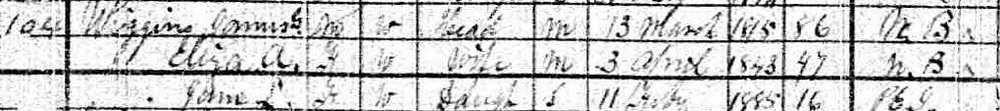 104 Wiggins M W Head M 13 March 1815 86 N. B.
Eliza A. F W Wife M 3 April 1843 47 N. B
Jane L. F W Daugh S 11 1885 16 P.E.I.